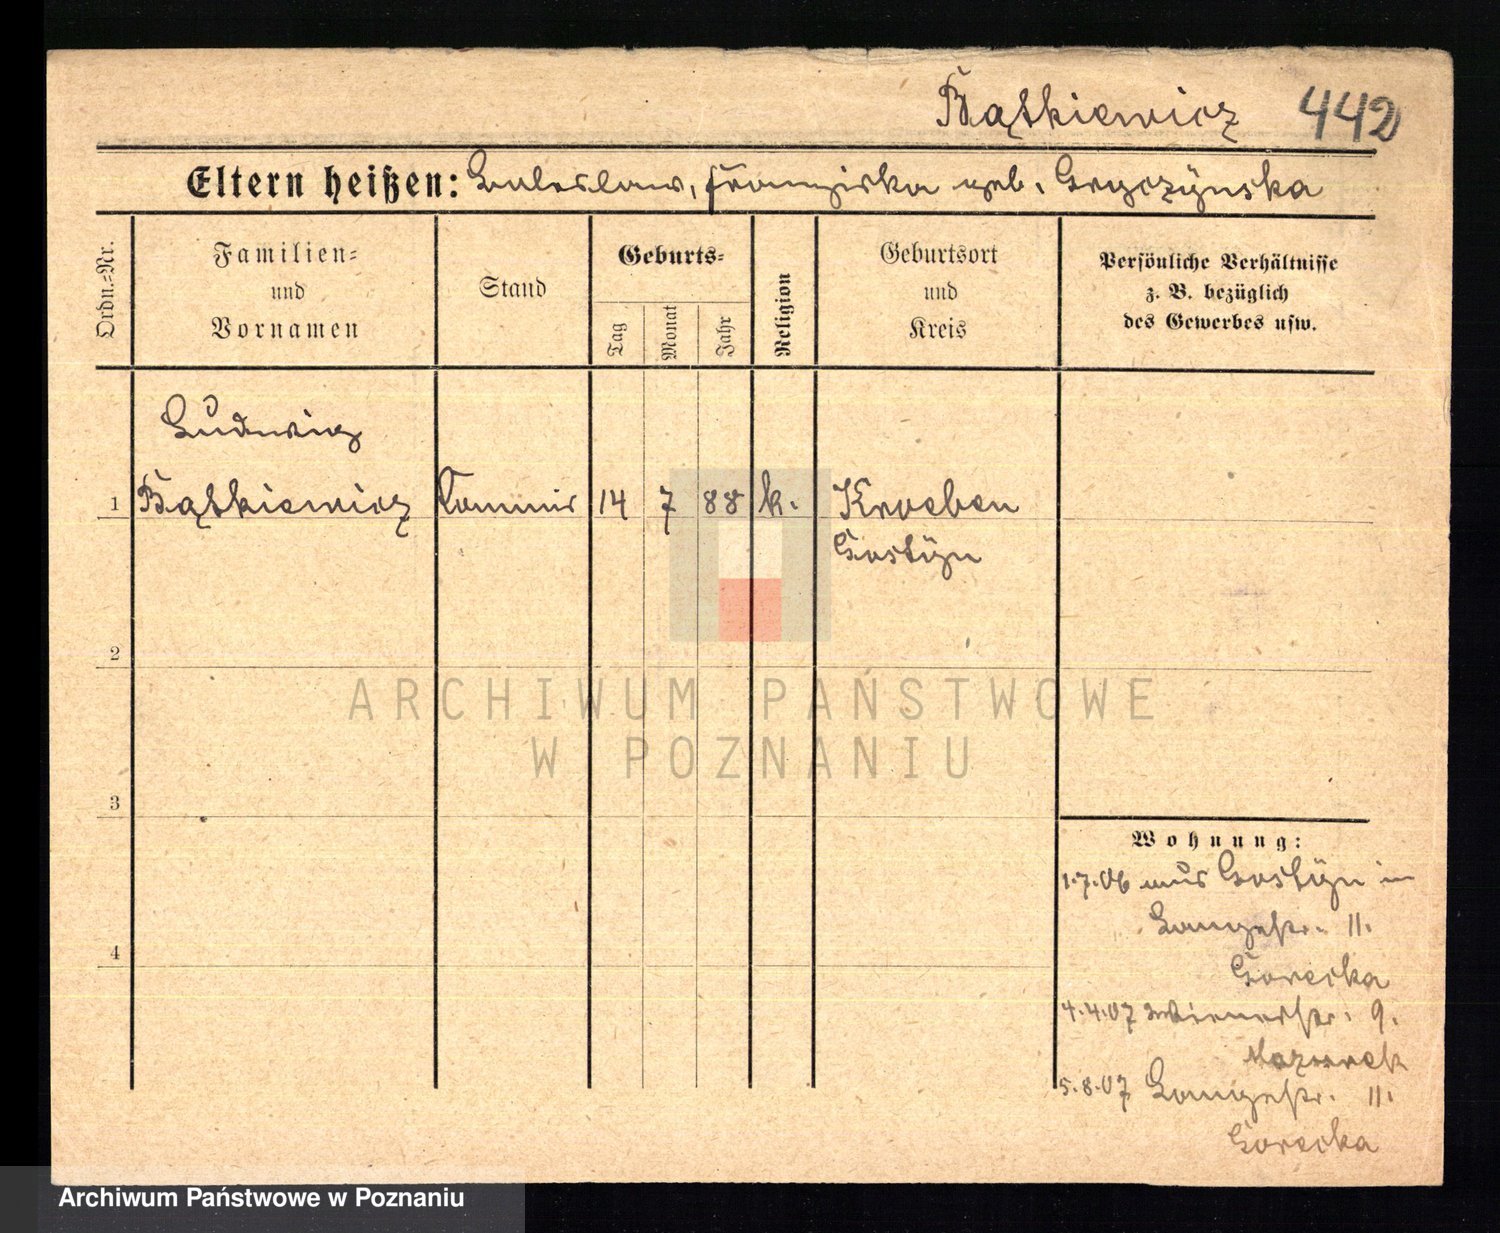 Bątkiewicz 442
Eltern heißen: Boleslaw, Franziska geb. Gryczyńska
Ordn.-Nr.
Familien-
und
Vornamen
Stand
Geburts-
Tag
Monat
Jahr
Religion
Geburtsort
und
Kreis
Persönliche Verhältnisse
z. B. bezüglich
des Gewerbes usw.
Ludwig
1 Bątkiewicz Commis 14 7 88 k. Kroeben
Gostyn
2
ARCHIWUM PAŃSTWOWE
W POZNANIU
3
Wohnung:
1.7.06 aus Gostyn in
Langestr. 11.
Gorecka
4
4.4.07 Wienerstr. 9.
Mazurek
5.8.07 Langestr. 11.
Gorecka
Archiwum Państwowe w Poznaniu